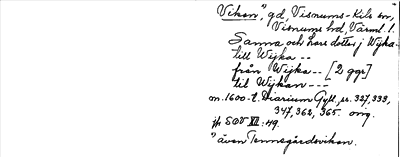 Vikan", gd, Visnums-Kils sn,
Visnums hd, Värml. l.
Sanna och hars dotter j Wijka
till Wijka --
från Wijka -- [2 ggr]
til Wijkan ---
m. 1600-t. Diarium Gyll., sr. 327, 333,
347, 362, 365. orig.
jfr SOV XII: 49.
" även Tomsgårdsvikan.